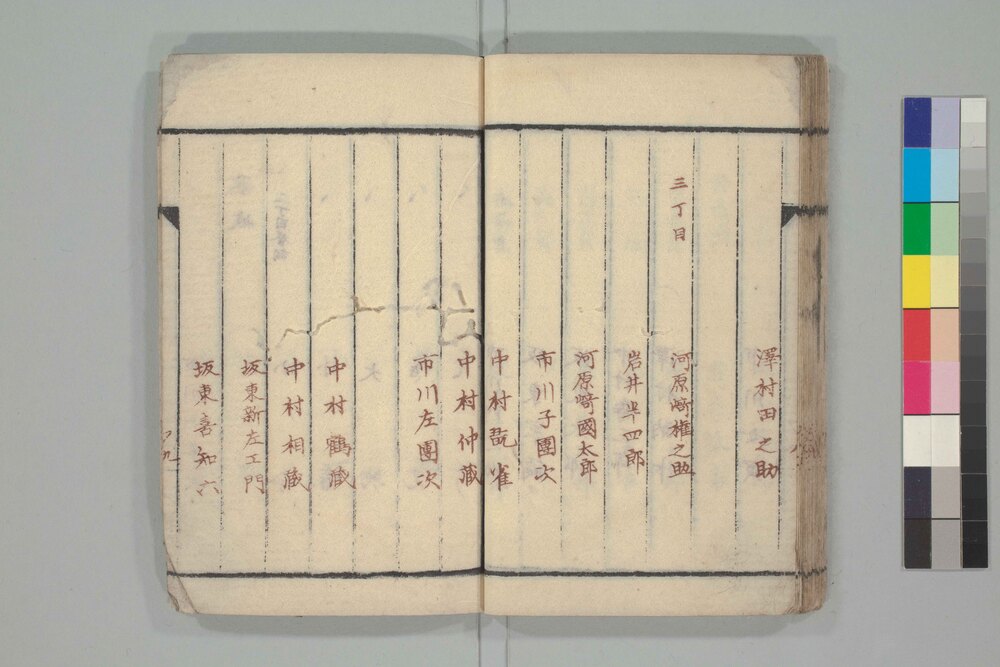 澤村田之助
三丁目
河原﨑權之助
岩井半四郎
河原﨑國太郎
市川子團次
中村翫雀
中村仲蔵
市川左團次
中村鶴蔵
中村相蔵
坂東新左エ門
坂東喜知六